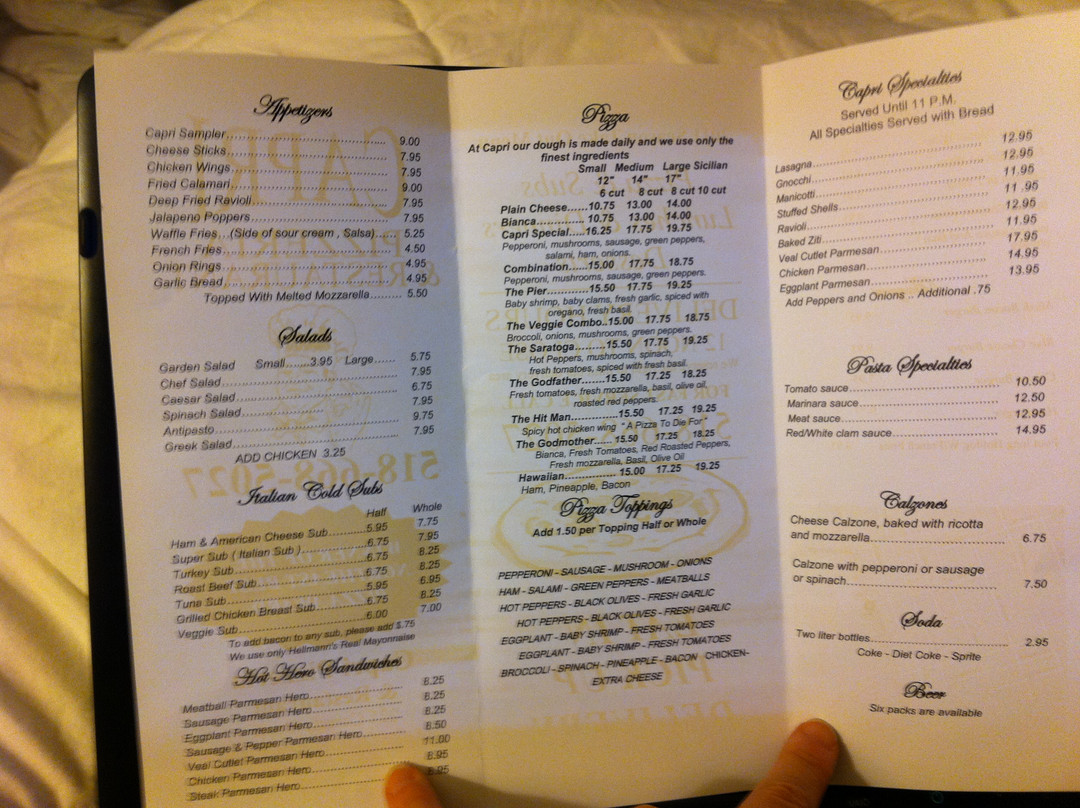 Appetizers
Capri Sampler 9.00
Cheese Sticks 7.95
Chicken Wings 7.95
Fried Calamari 9.00
Deep Fried Ravioli 7.95
Jalapeno Poppers 7.95
Waffle Fries...(Side of sour cream , Salsa) 5.25
French Fries 4.50
Onion Rings 4.95
Garlic Bread 4.95
Topped With Melted Mozzarella 5.50
Salads
Garden Salad Small 3.95 Large 5.75
Chef Salad 7.95
Caesar Salad 6.75
Spinach Salad 7.95
Antipasto 9.75
Greek Salad 7.95
ADD CHICKEN 3.25
Italian Cold Subs
Half Whole
Ham & American Cheese Sub 5.95 7.75
Super Sub ( Italian Sub ) 6.75 7.95
Turkey Sub 6.75 8.25
Roast Beef Sub 6.75 8.25
Tuna Sub 5.95 6.95
Grilled Chicken Breast Sub 6.75 8.25
Veggie Sub 6.00 7.00
To add bacon to any sub, please add $.75
We use only Hellmann's Real Mayonnaise
Hot Hero Sandwiches
Meatball Parmesan Hero 8.25
Sausage Parmesan Hero 8.25
Eggplant Parmesan Hero 8.25
Sausage & Pepper Parmesan Hero 8.50
Veal Cutlet Parmesan Hero 11.00
Chicken Parmesan Hero 8.95
Steak Parmesan Hero 8.95
Pizza
At Capri our dough is made daily and we use only the
finest ingredients
Small Medium Large Sicilian
12" 14" 17"
6 cut 8 cut 8 cut 10 cut
Plain Cheese 10.75 13.00 14.00
Bianca 10.75 13.00 14.00
Capri Special 16.25 17.75 19.75
Pepperoni, mushrooms, sausage, green peppers,
salami, ham, onions.
Combination 15.00 17.75 18.75
Pepperoni, mushrooms, sausage, green peppers.
The Pier 15.50 17.75 19.25
Baby shrimp, baby clams, fresh garlic, spiced with
oregano, fresh basil.
The Veggie Combo..15.00 17.75 18.75
Broccoli, onions, mushrooms, green peppers.
The Saratoga 15.50 17.75 19.25
Hot Peppers, mushrooms, spinach,
fresh tomatoes, spiced with fresh basil.
The Godfather 15.50 17.25 18.25
Fresh tomatoes, fresh mozzarella, basil, olive oil,
roasted red peppers.
The Hit Man 15.50 17.25 19.25
Spicy hot chicken wing " A Pizza To Die For "
The Godmother 15.50 17.25 18.25
Bianca, Fresh Tomatoes, Red Roasted Peppers,
Fresh mozzarella, Basil, Olive Oil
Hawaiian 15.00 17.25 19.25
Ham, Pineapple, Bacon
Pizza Toppings
Add 1.50 per Topping Half or Whole
PEPPERONI - SAUSAGE - MUSHROOM - ONIONS
HAM - SALAMI - GREEN PEPPERS - MEATBALLS
HOT PEPPERS - BLACK OLIVES - FRESH GARLIC
HOT PEPPERS - BLACK OLIVES - FRESH GARLIC
EGGPLANT - BABY SHRIMP - FRESH TOMATOES
EGGPLANT - BABY SHRIMP - FRESH TOMATOES
BROCCOLI - SPINACH - PINEAPPLE - BACON CHICKEN-
EXTRA CHEESE
Capri Specialties
Served Until 11 P.M.
All Specialties Served with Bread
Lasagna 12.95
Gnocchi 12.95
Manicotti 11.95
Stuffed Shells 11 .95
Ravioli 12.95
Baked Ziti 11.95
Veal Cutlet Parmesan 17.95
Chicken Parmesan 14.95
Eggplant Parmesan 13.95
Add Peppers and Onions .. Additional .75
Pasta Specialties
Tomato sauce 10.50
Marinara sauce 12.50
Meat sauce 12.95
Red/White clam sauce 14.95
Calzones
Cheese Calzone, baked with ricotta
and mozzarella 6.75
Calzone with pepperoni or sausage
or spinach 7.50
Soda
Two liter bottles 2.95
Coke - Diet Coke - Sprite
Beer
Six packs are available